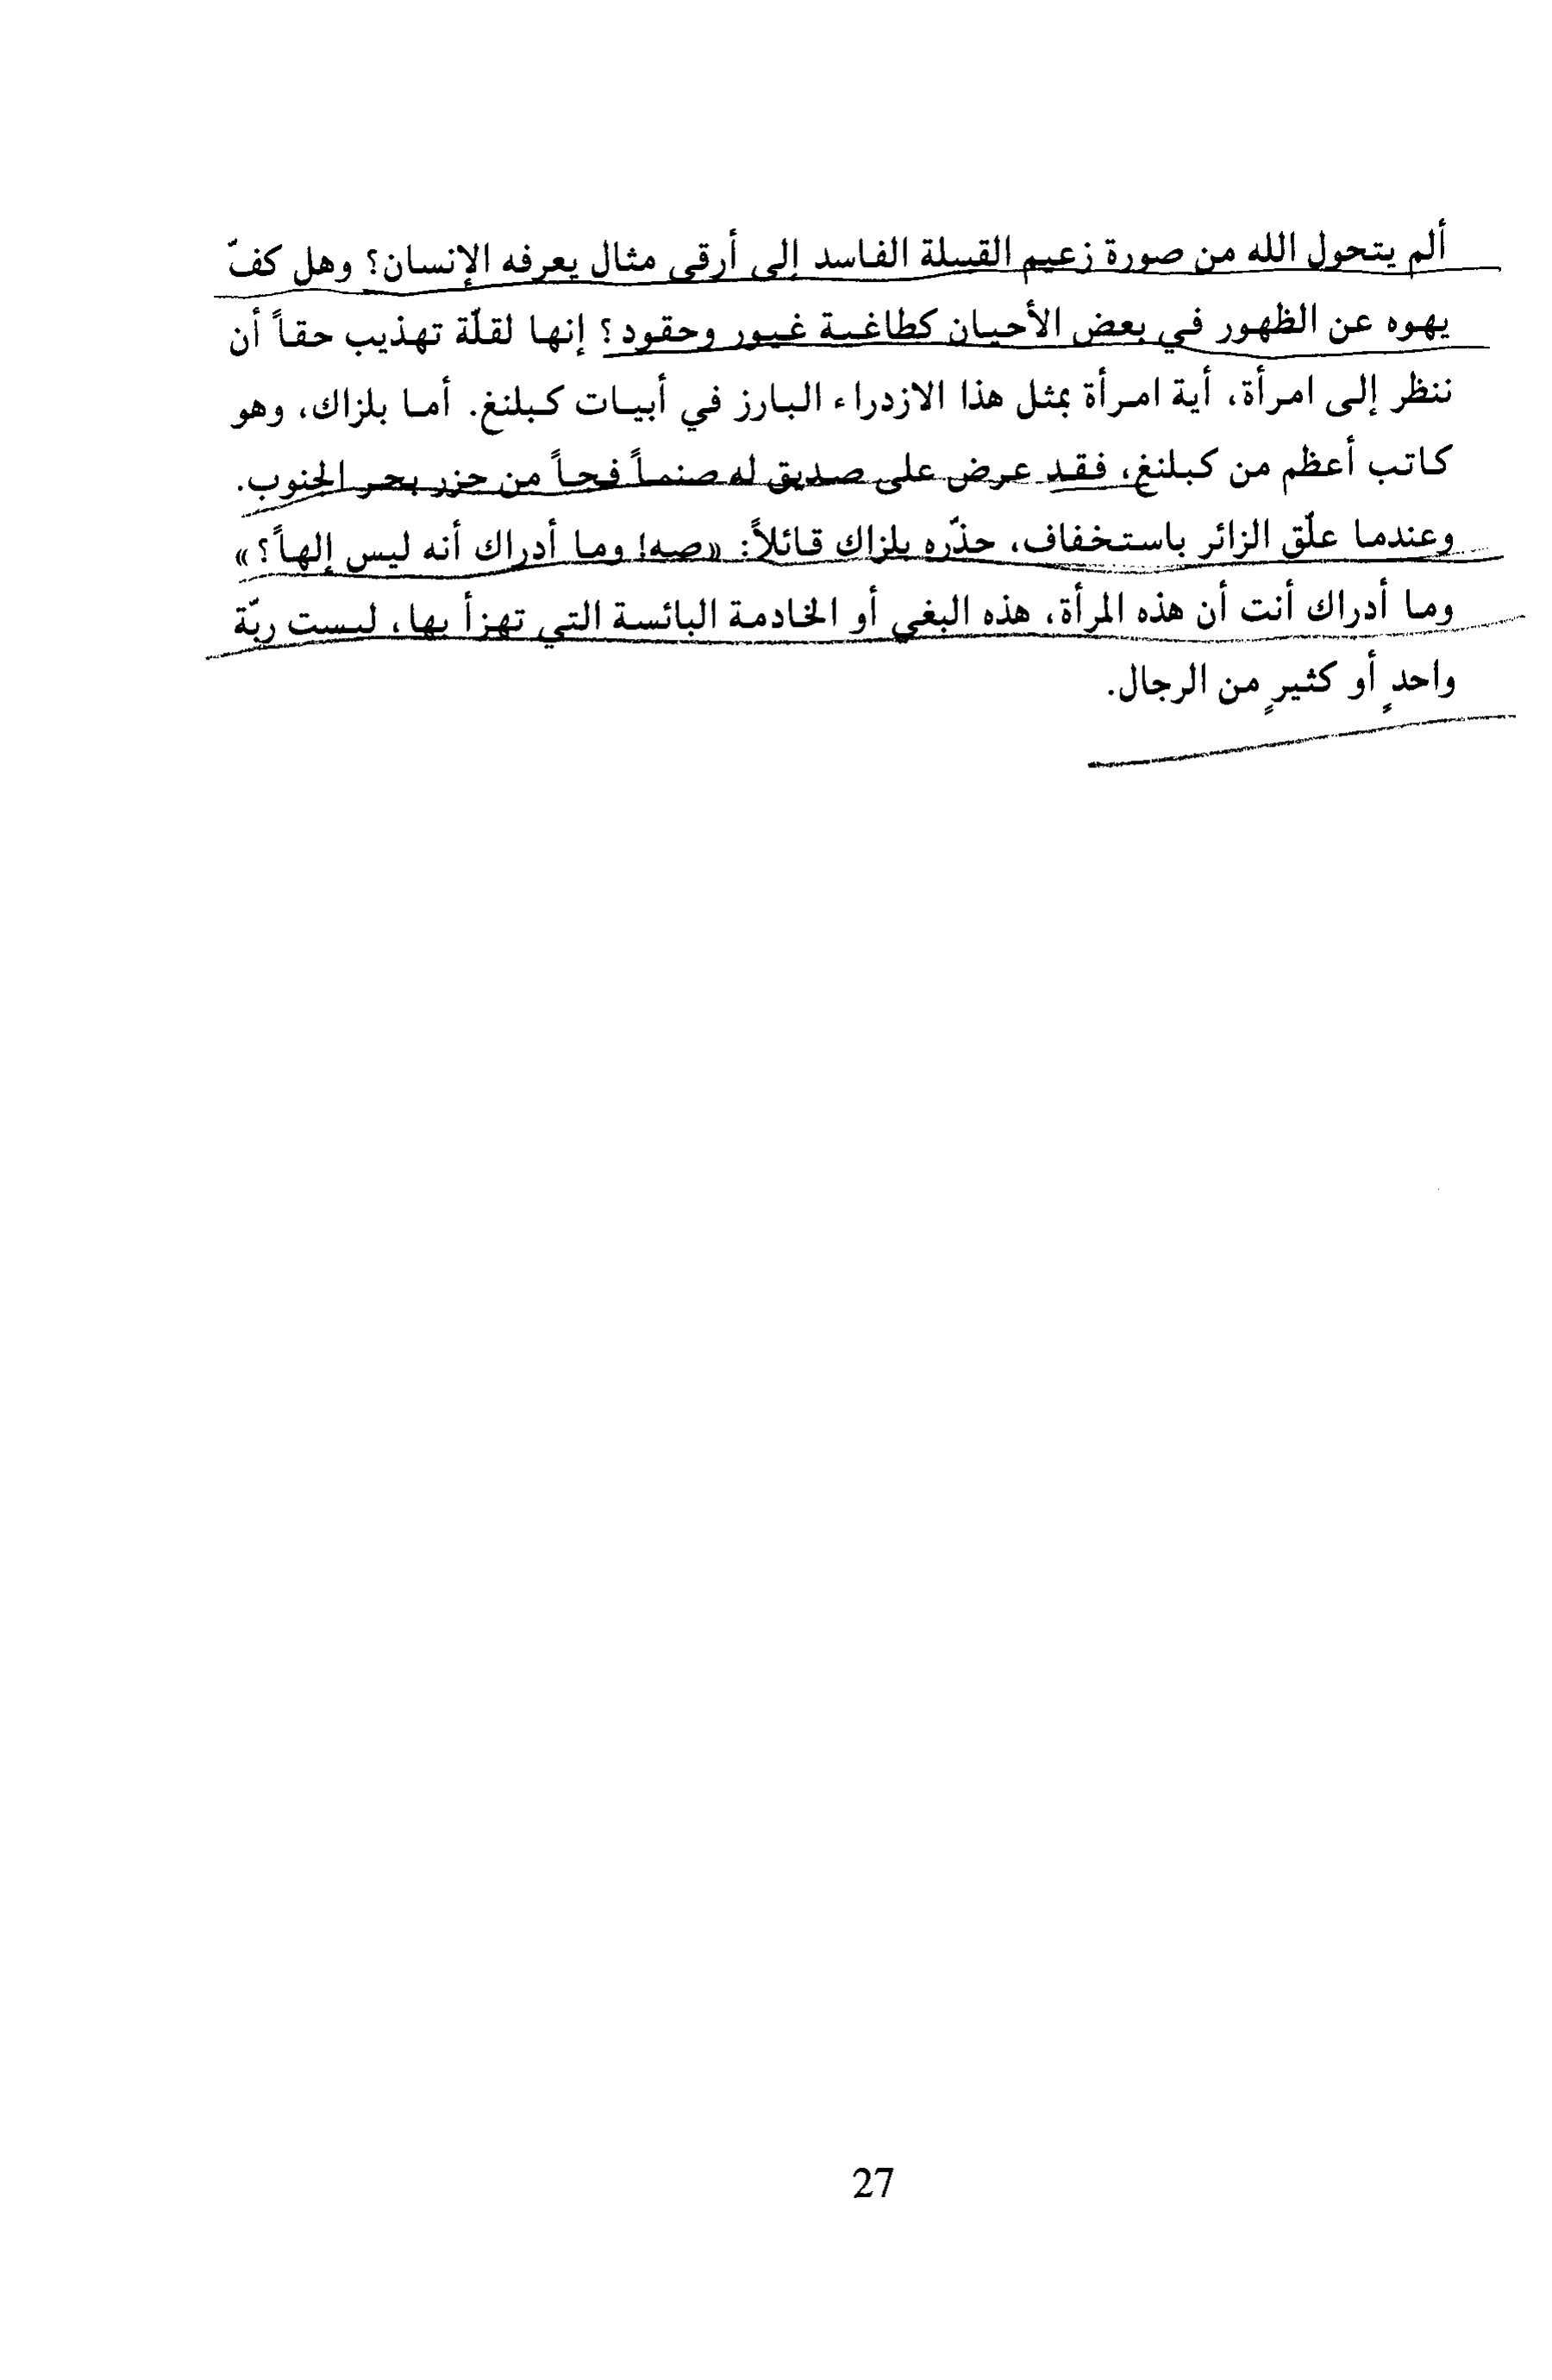 ألم يتحول الله من صورة زعيم القبيلة الفاسد إلى أرقى مثال يعرفه الإنسان؟ وهل كفّ
يهوه عن الظهور في بعض الأحيان كطاغية غيور وحقود؟ إنها لقلّة تهذيب حقاً أن
ننظر إلى امرأة، أية امرأة بمثل هذا الازدراء البارز في أبيات كبلنغ. أما بلزاك، وهو
كاتب أعظم من كبلنغ، فقد عرض على صديق له صنماً فجاً من جزر بحر الجنوب.
وعندما علّق الزائر باستخفاف، حذّره بلزاك قائلاً: «صه! وما أدراك أنه ليس إلهاً؟»
وما أدراك أنت أن هذه المرأة، هذه البغي أو الخادمة البائسة التي تهزأ بها، ليست ربّة
واحدٍ أو كثيرٍ من الرجال.
27